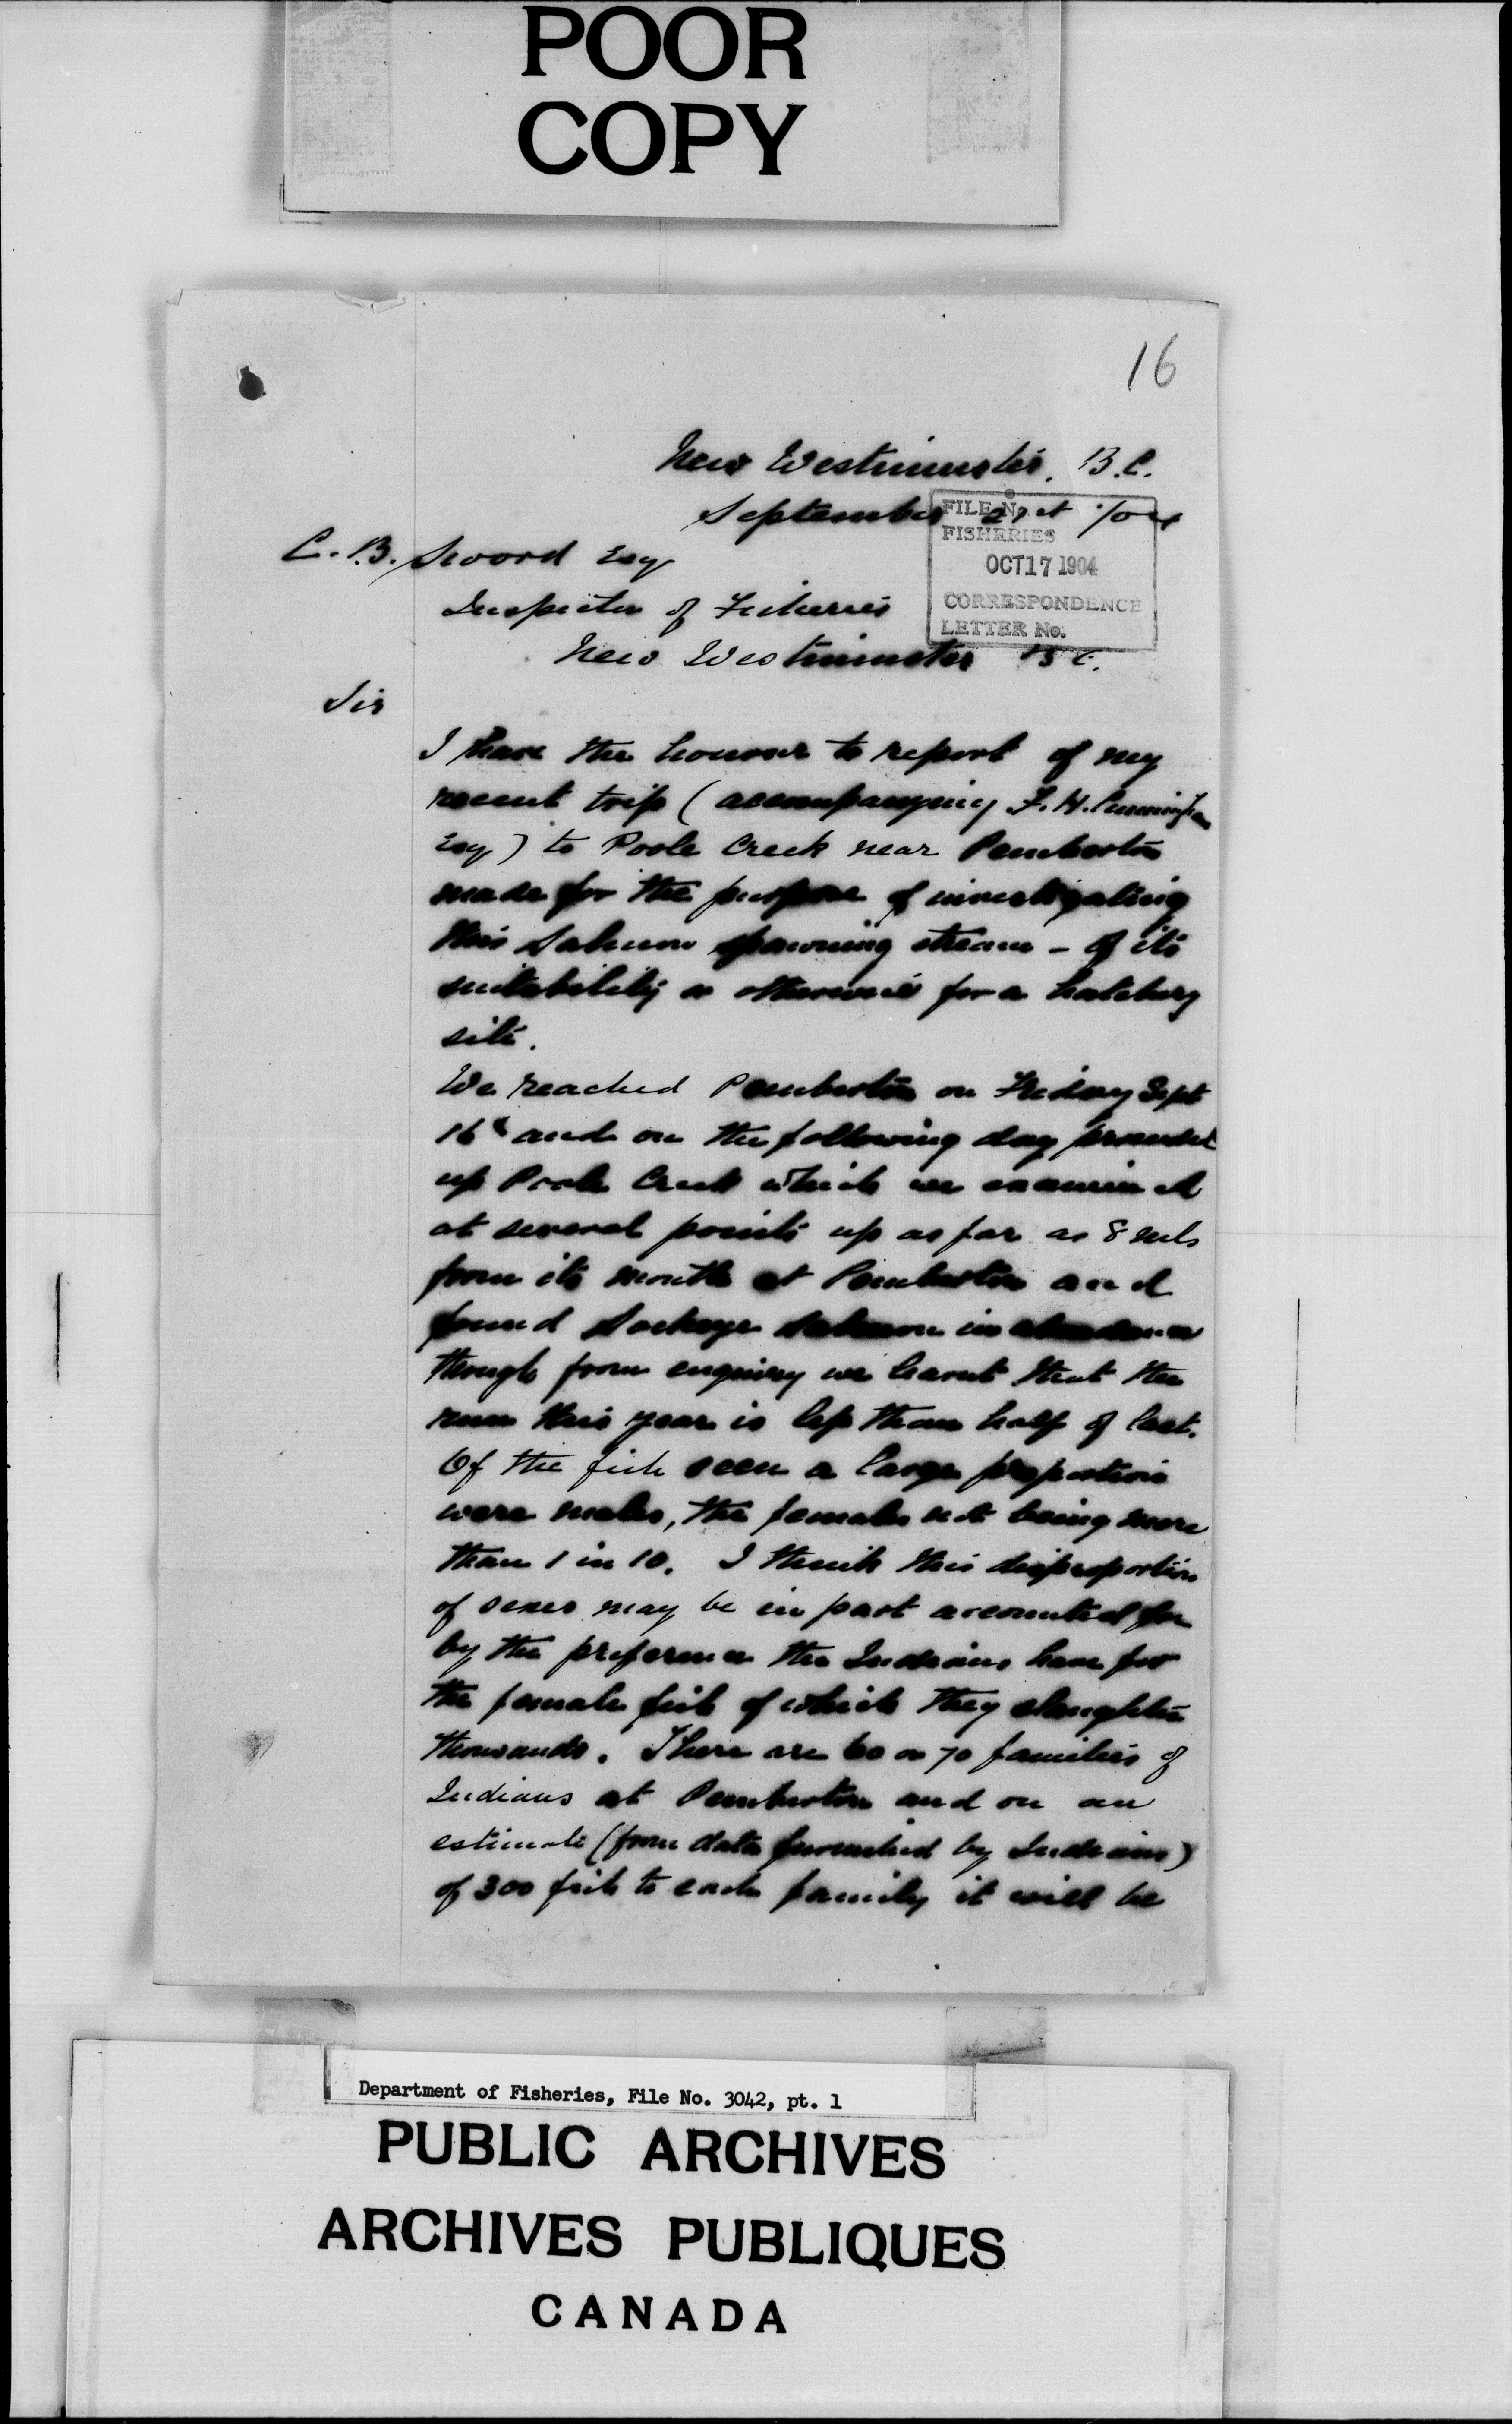 POOR
COPY
16
New Westminster. B.C.
September 21st 1904
FILE No.
FISHERIES
OCT 17 1904
CORRESPONDENCE
LETTER No.
C. B. Sword Esq
Inspector of Fisheries
New Westminster B C.
Sir
I have the honour to report of my
recent trip (accompanying F. H. Cunningham
Esq) to Poole Creek near Pemberton
made for the purpose of investigating
this Salmon spawning stream - of its
suitability or otherwise for a hatchery
site.
We reached Pemberton on Friday Sept
16th and on the following day proceeded
up Poole Creek which we examined
at several points up as far as 8 mls
from its mouth at Pemberton and
found Sockeye Salmon in abundance
though from enquiry we learnt that the
run this year is less than half of last.
Of the fish seen a large proportion
were males, the females not being more
than 1 in 10. I think this disproportion
of sexes may be in part accounted for
by the preference the Indians have for
the female fish of which they slaughter
thousands. There are 60 or 70 families of
Indians at Pemberton and on an
estimate (from data furnished by Indians)
of 300 fish to each family it will be
Department of Fisheries, File No. 3042, pt. 1
PUBLIC ARCHIVES
ARCHIVES PUBLIQUES
CANADA